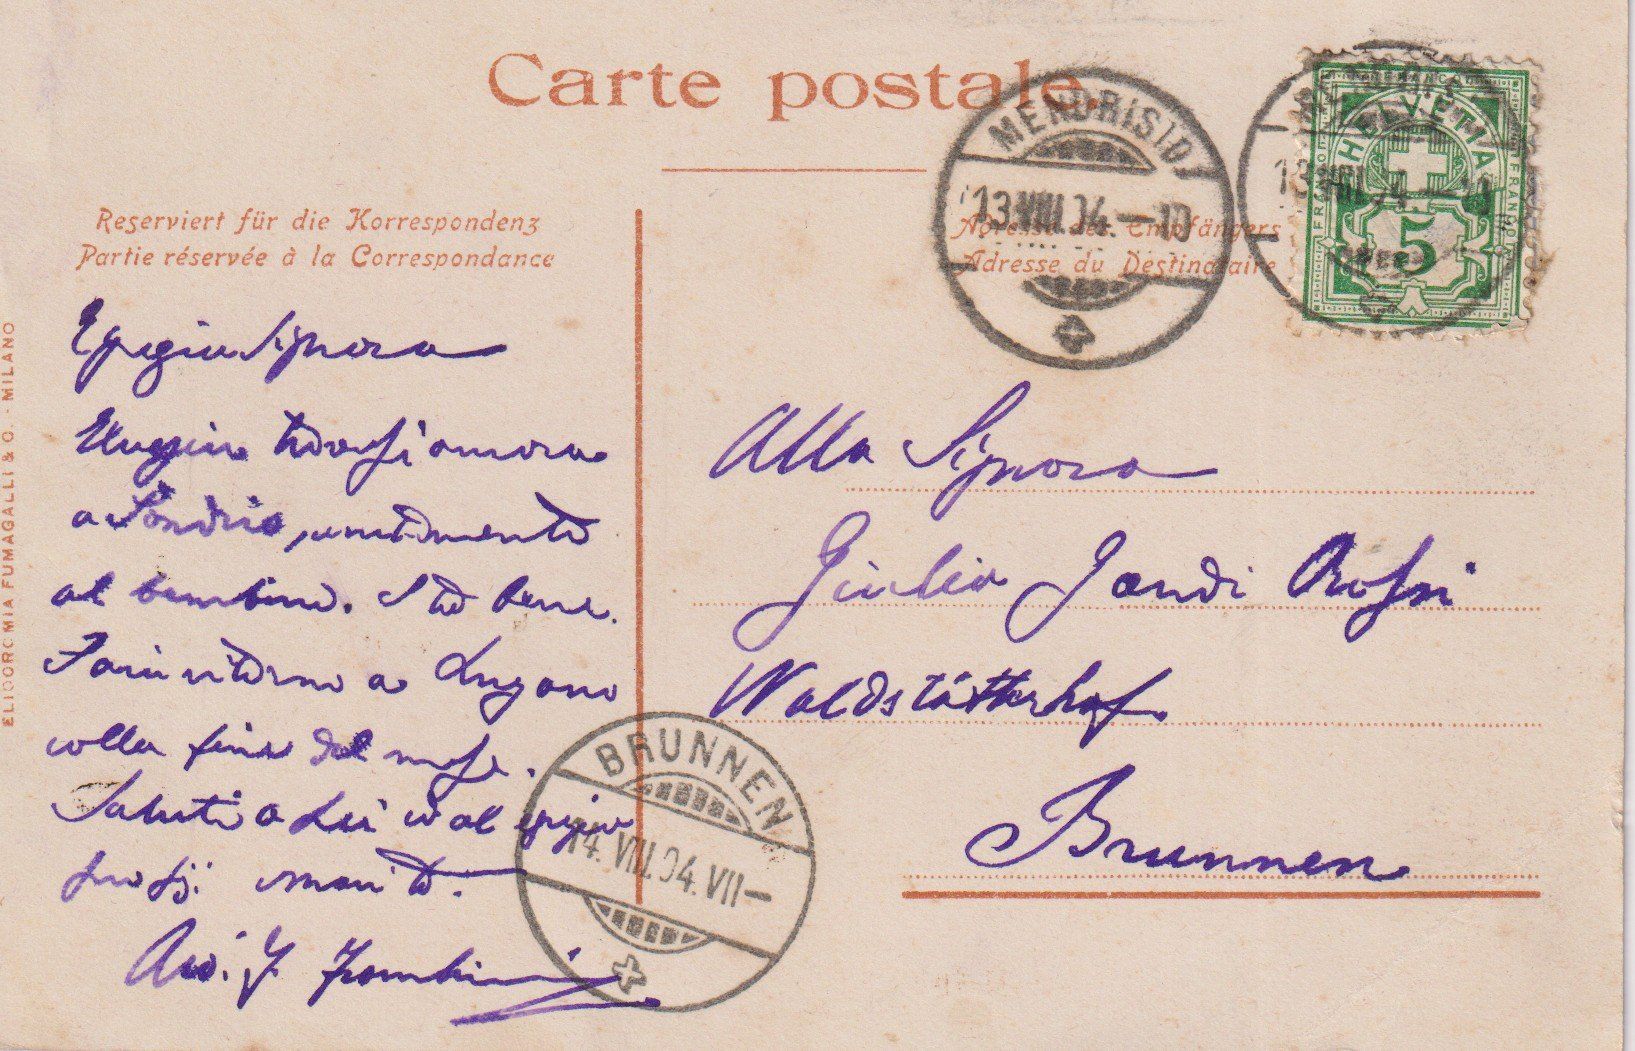 Carte postale
Reserviert für die Korrespondenz
Partie réservée à la Correspondance
Adresse des Empfängers
Adresse du Destinataire
MENDRISIO
13.VIII.04.—10
13.VIII.04.—
HELVETIA
FRANCO
FRANCO
5
ELIOCROMIA FUMAGALLI & C. - MILANO
Egregia Signora
trovasi ancora
a Sondrio, unitamente
al bambino. Sto bene.
Farò ritorno a Lugano
colla fine del mese.
Saluti a Lei ed al egregio
marito.
Avv.
Alla Signora
Giulia Rossi
Waldstätterhof
Brunnen
BRUNNEN
14.VIII.04.VII—